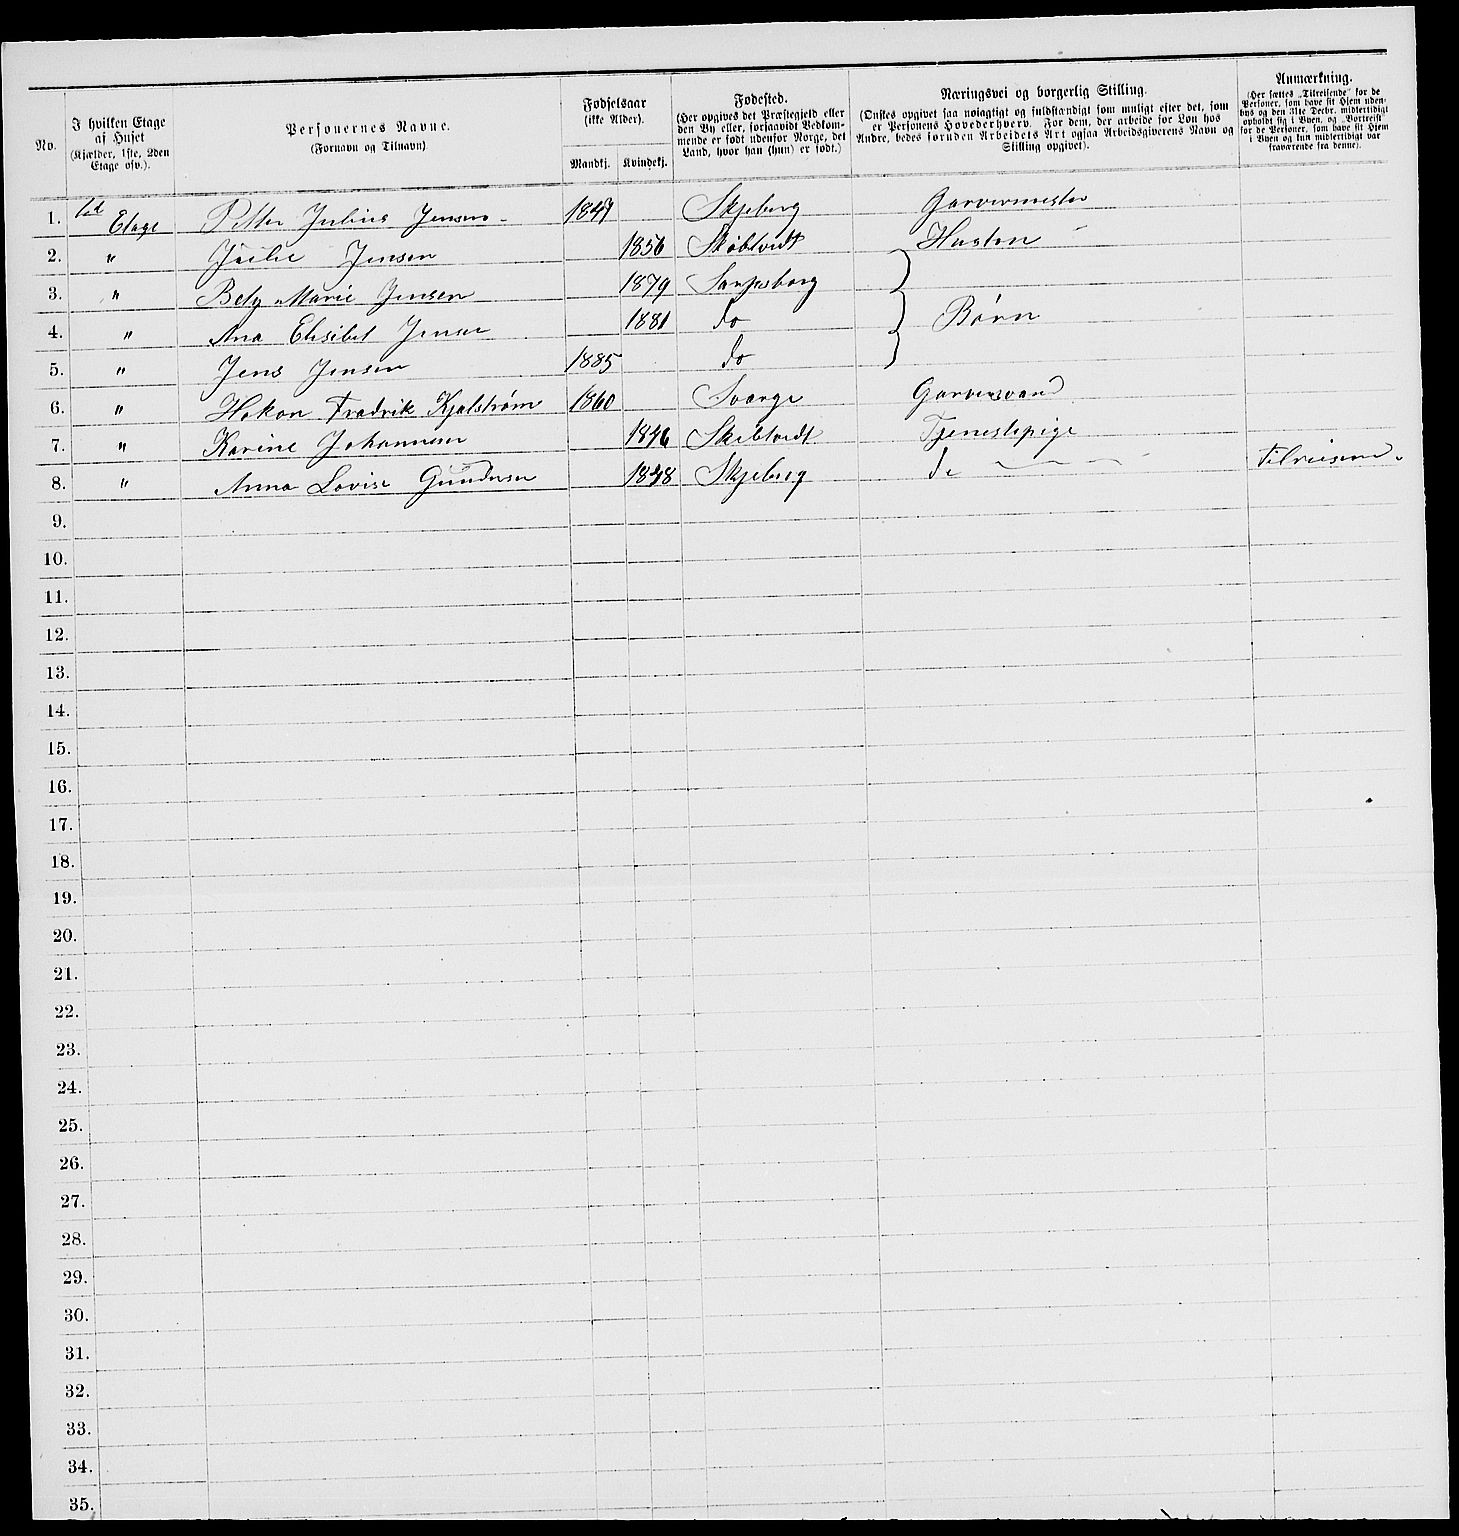 No.
I hvilken Etage
af Huset
(Kjælder, 1ste, 2den
Etage osv.).
Personernes Navne.
(Fornavn og Tilnavn)
Fødselsaar
(ikke Alder).
Mandkj. Kvindekj.
Fødested.
(Her opgives det Præstegjeld eller
den By eller, forsaavidt Vedkom-
mende er født udenfor Norge, det
Land, hvor han (hun) er født.)
Næringsvei og borgerlig Stilling.
(Ønskes opgivet saa nøiagtigt og fuldstændigt som muligt efter det, som
er Personens Hovederhverv. For dem, der arbeide for Løn hos
Andre, bedes foruden Arbeidets Art ogsaa Arbeidsgiverens Navn og
Stilling opgivet).
Anmærkning.
(Her sættes „Tilreisende" for de
Personer, som have sit Hjem uden-
bys og den 31te Decbr. midlertidigt
opholdt sig i Byen, og „Bortreist"
for de Personer, som have sit Hjem
i Byen og kun midlertidigt var
fraværende fra denne).
1. Etage Petter Julius Jensen 1847 Skjeberg Garvermester
2. " Julie Jensen 1856 Skibtvedt Hustru
3. " Bety Marie Jensen 1879 Sarpsborg
4. " Ana Elisibet Jensen 1881 do Børn
5. " Jens Jensen 1885 do
6. " Hakon Fredrik Kjelstrøm 1860 Sverge Garversvend
7. " Karine Johannesen 1846 Skibtvedt Tjenestepige
8. " Anna Lovise Gundersen 18 8 Skjeberg do Tilreisend
9.
10.
11.
12.
13.
14.
15.
16.
17.
18.
19.
20.
21.
22.
23.
24.
25.
26.
27.
28.
29.
30.
31.
32.
33.
34.
35.